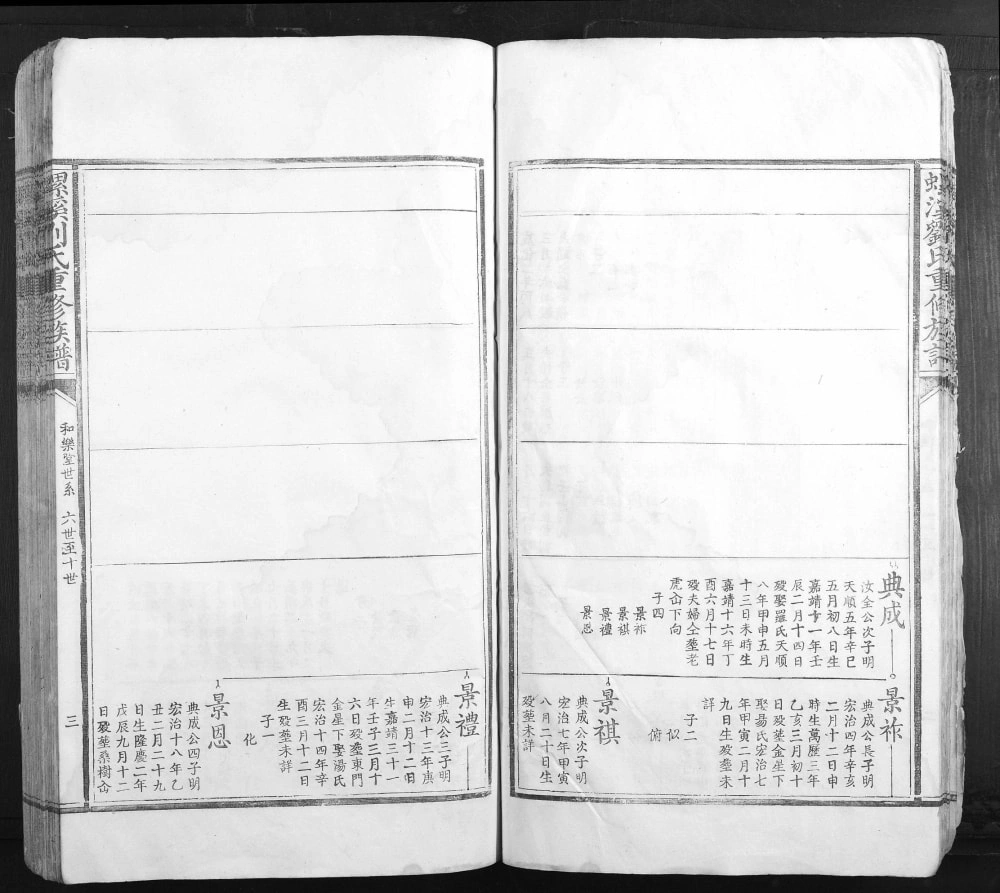 螺溪劉氏重修族譜
典成
汝全公次子明
天順五年辛巳
五月初八日生
嘉靖十一年壬
辰二月十四日
歿娶羅氏天順
八年甲申五月
十三日未時生
嘉靖十六年丁
酉六月十七日
歿夫婦仝塟老
虎岙下向
子四
景祚
景祺
景禮
景恩
景祚
典成公長子明
宏治四年辛亥
二月十二日申
時生萬歷三年
乙亥三月初十
日歿塟金星下
娶揚氏宏治七
年甲寅二月十
九日生歿塟未
詳
子二
似
俯
景祺
典成公次子明
宏治七年甲寅
八月二十日生
歿塟未詳
景禮
典成公三子明
宏治十三年庚
申二月十二日
生嘉靖三十一
年壬子三月十
六日歿塟東門
金星下娶湯氏
宏治十四年辛
酉三月十二日
生歿塟未詳
子一
化
景恩
典成公四子明
宏治十八年乙
丑二月二十九
日生隆慶二年
戊辰九月十二
日歿塟桑樹岙
螺溪劉氏重修族譜
和樂堂世系 六世至十世
三